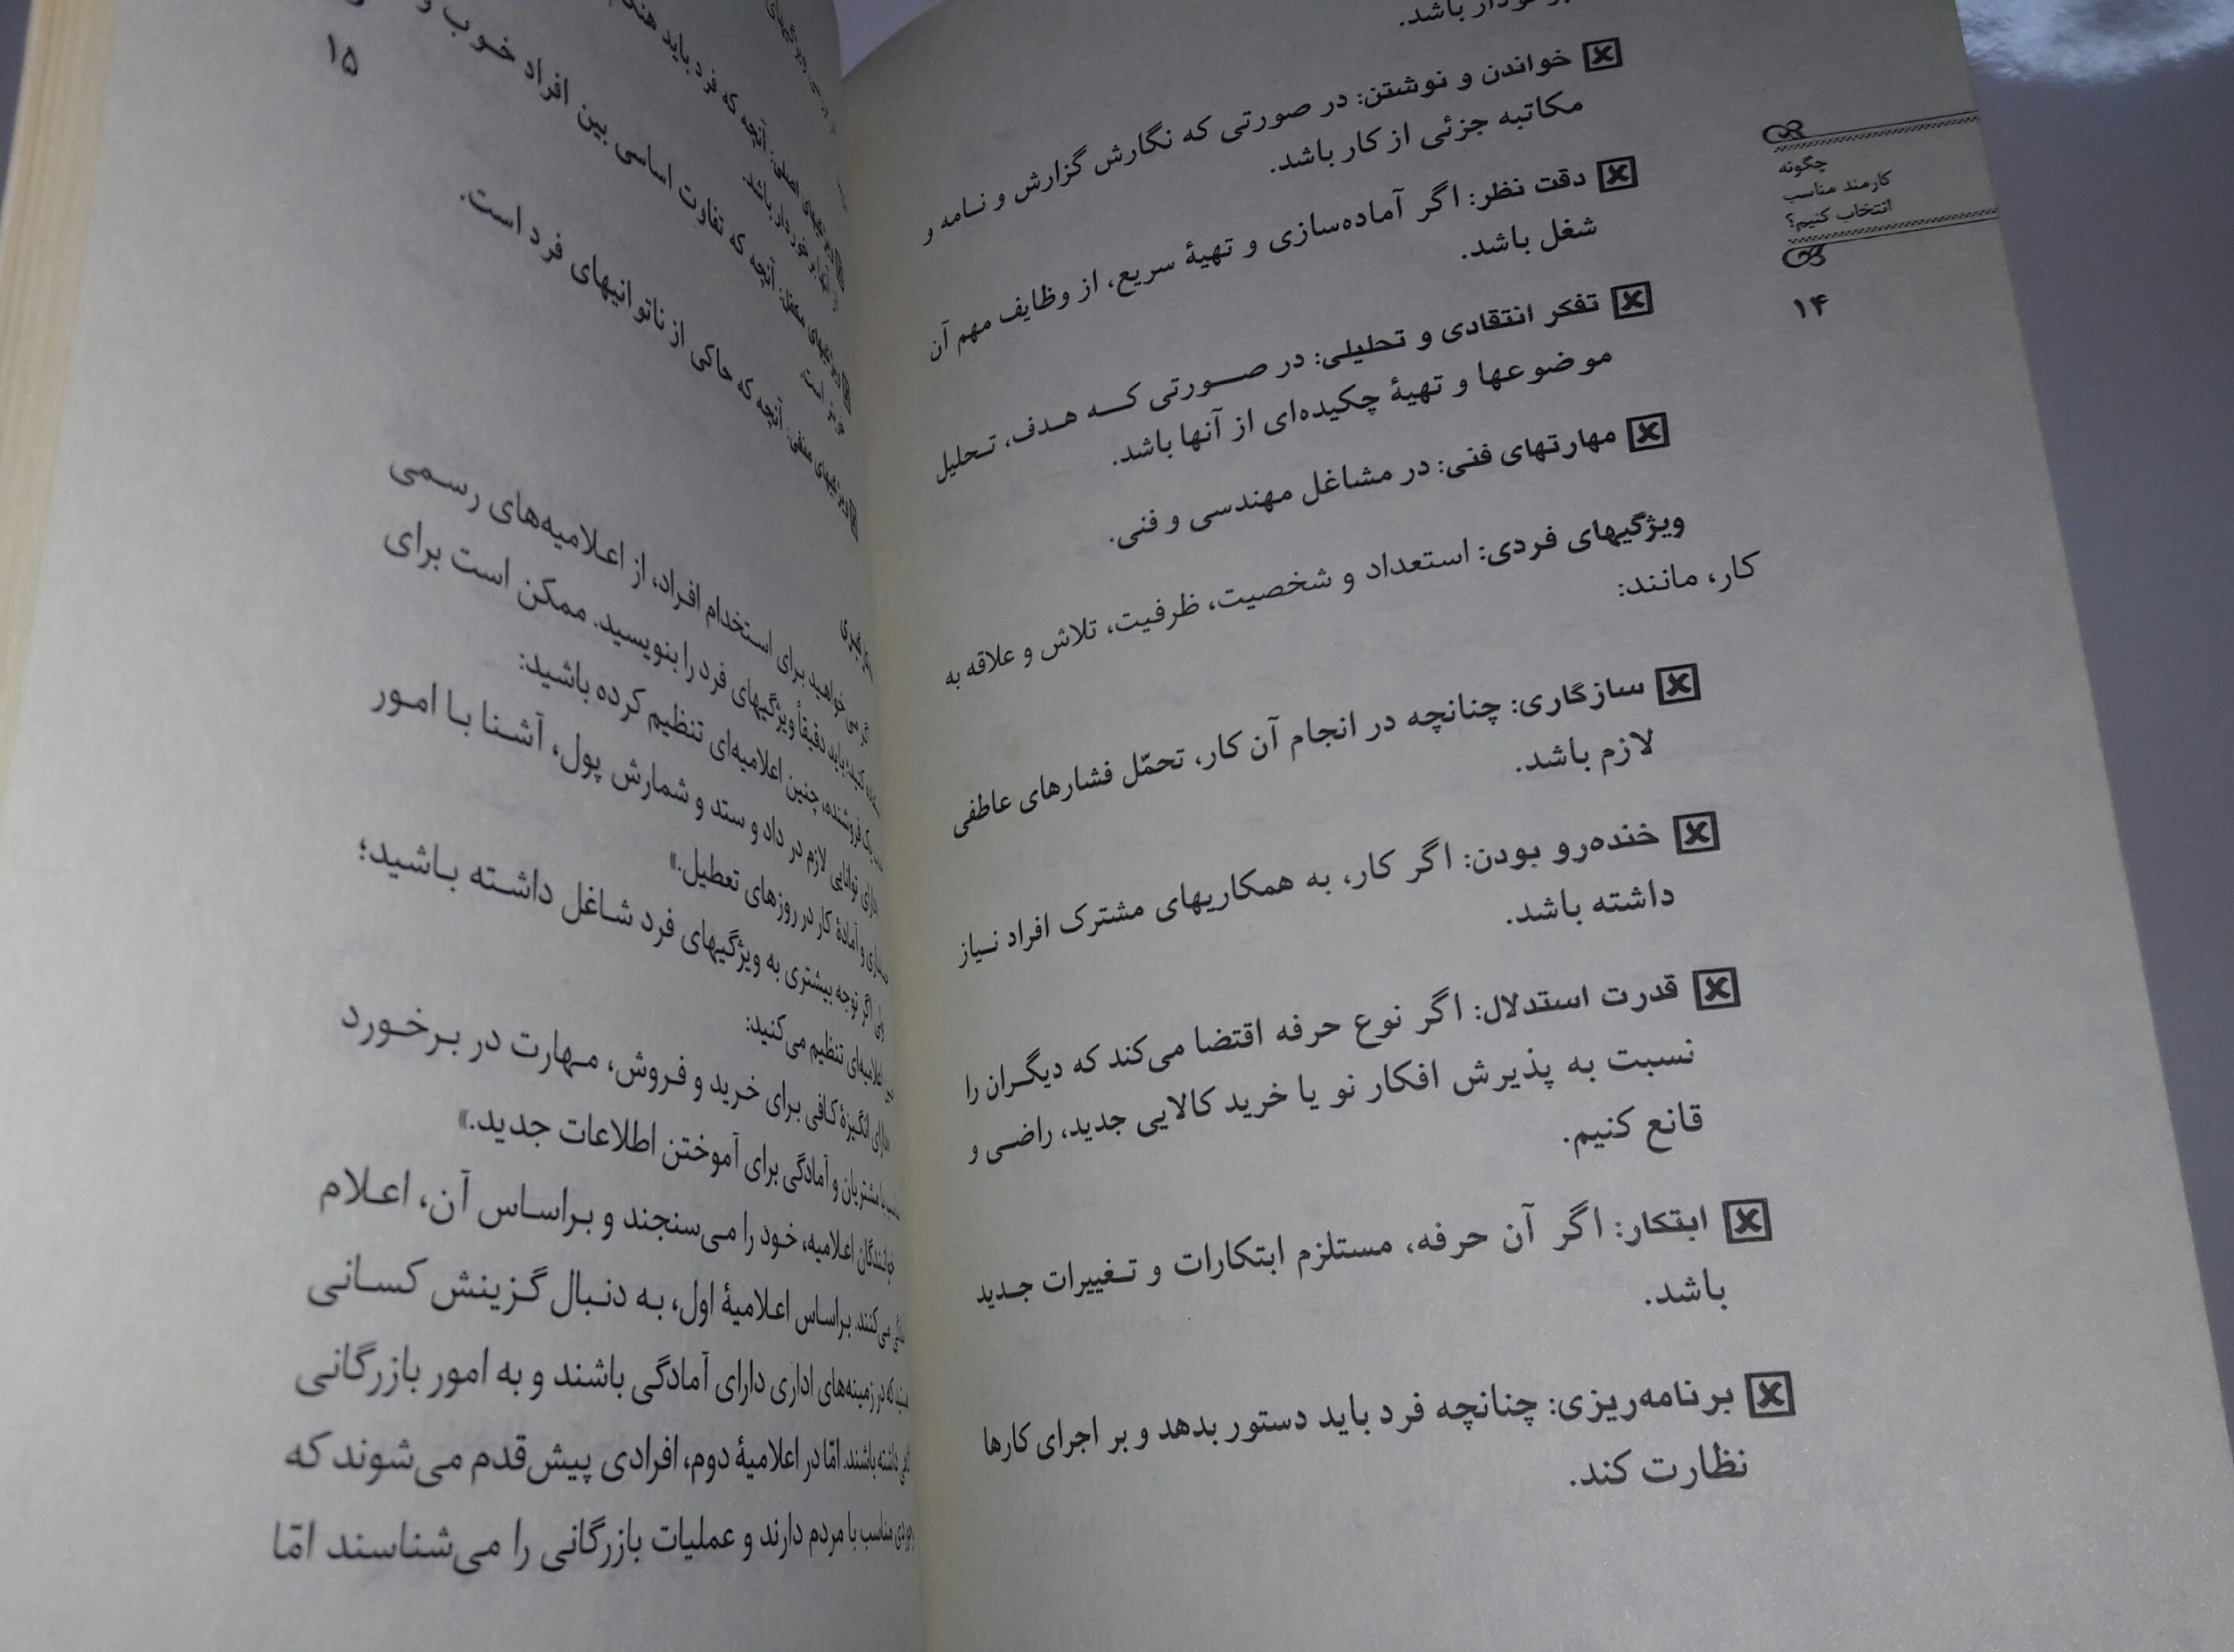 برخوردار باشد.
خواندن و نوشتن: در صورتی که نگارش گزارش و نامه و
مکاتبه جزئی از کار باشد.
دقت نظر: اگر آماده‌سازی و تهیهٔ سریع، از وظایف مهم آن
شغل باشد.
تفکر انتقادی و تحلیلی: در صورتی که هدف، تحلیل
موضوعها و تهیهٔ چکیده‌ای از آنها باشد.
مهارتهای فنی: در مشاغل مهندسی و فنی.
ویژگیهای فردی: استعداد و شخصیت، ظرفیت، تلاش و علاقه به
کار، مانند:
سازگاری: چنانچه در انجام آن کار، تحمّل فشارهای عاطفی
لازم باشد.
خنده‌رو بودن: اگر کار، به همکاریهای مشترک افراد نیاز
داشته باشد.
قدرت استدلال: اگر نوع حرفه اقتضا می‌کند که دیگران را
نسبت به پذیرش افکار نو یا خرید کالایی جدید، راضی و
قانع کنیم.
ابتکار: اگر آن حرفه، مستلزم ابتکارات و تغییرات جدید
باشد.
برنامه‌ریزی: چنانچه فرد باید دستور بدهد و بر اجرای کارها
نظارت کند.
چگونه
کارمند مناسب
انتخاب کنیم؟
۱۴
۱۵
ویژگیهای اصلی: آنچه که فرد باید
برخوردار باشد.
آنچه که تفاوت اساسی بین افراد خوب و
است.
ویژگیهای منفی: آنچه که حاکی از ناتوانیهای فرد است.
می‌خواهید برای استخدام افراد، از اعلامیه‌های رسمی
کنید، باید دقیقاً ویژگیهای فرد را بنویسید. ممکن است برای
یک فروشنده، چنین اعلامیه‌ای تنظیم کرده باشید:
دارای توانایی لازم در داد و ستد و شمارش پول، آشنا با امور
و آمادهٔ کار در روزهای تعطیل.»
ولی اگر توجه بیشتری به ویژگیهای فرد شاغل داشته باشید؛
اعلامیه‌ای تنظیم می‌کنید:
دارای انگیزهٔ کافی برای خرید و فروش، مهارت در برخورد
با مشتریان و آمادگی برای آموختن اطلاعات جدید.»
خوانندگان اعلامیه، خود را می‌سنجند و براساس آن، اعلام
می‌کنند. براساس اعلامیهٔ اول، به دنبال گزینش کسانی
که در زمینه‌های اداری دارای آمادگی باشند و به امور بازرگانی
داشته باشند. امّا در اعلامیهٔ دوم، افرادی پیش‌قدم می‌شوند که
مناسب با مردم دارند و عملیات بازرگانی را می‌شناسند امّا